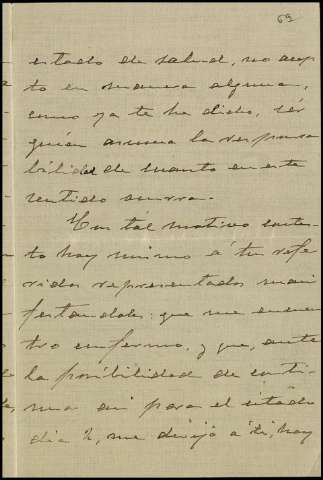 69
estado de salud, no acep
to en manera alguna,
como ya te he dicho, ser
quien asuma la responsa
bilidad de cuanto en este
sentido ocurra.
Con tál motivo contes-
to hoy mismo á tus refe
ridos representados mani
festandoles: que me encuen
tro enfermo, y que, ante
la posibilidad de conti-
nuar así para el citado
dia 2, me dirijo á ti, hoy